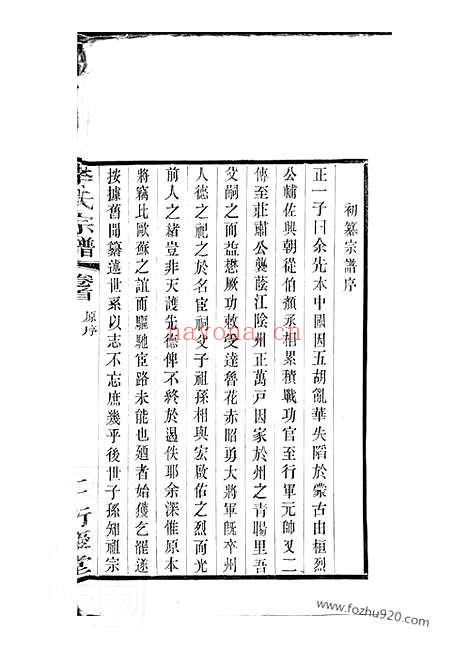 初纂宗譜序
正一子曰余先本中國因五胡亂華失陷於蒙古由桓烈
公輔佐興朝從伯顏丞相累積戰功官至行軍元帥又二
傳至莊肅公襲蔭江陰州正萬戶因家於州之青暘里吾
父嗣之而益懋厥功敕受達魯花赤昭勇大將軍旣卒州
人德之祀之於名宦祠父子祖孫相與宏啟佑之烈而光
前人之緒豈非天護先德俾不終於遏佚耶余深惟原本
將竊比歐蘇之誼而驅馳宦路未能也廼者始獲乞罷遂
按據舊聞纂遠世系以志不忘庶幾乎後世子孫知祖宗
李氏宗譜
卷首
原序
nayona.cn
www.fozhu920.com